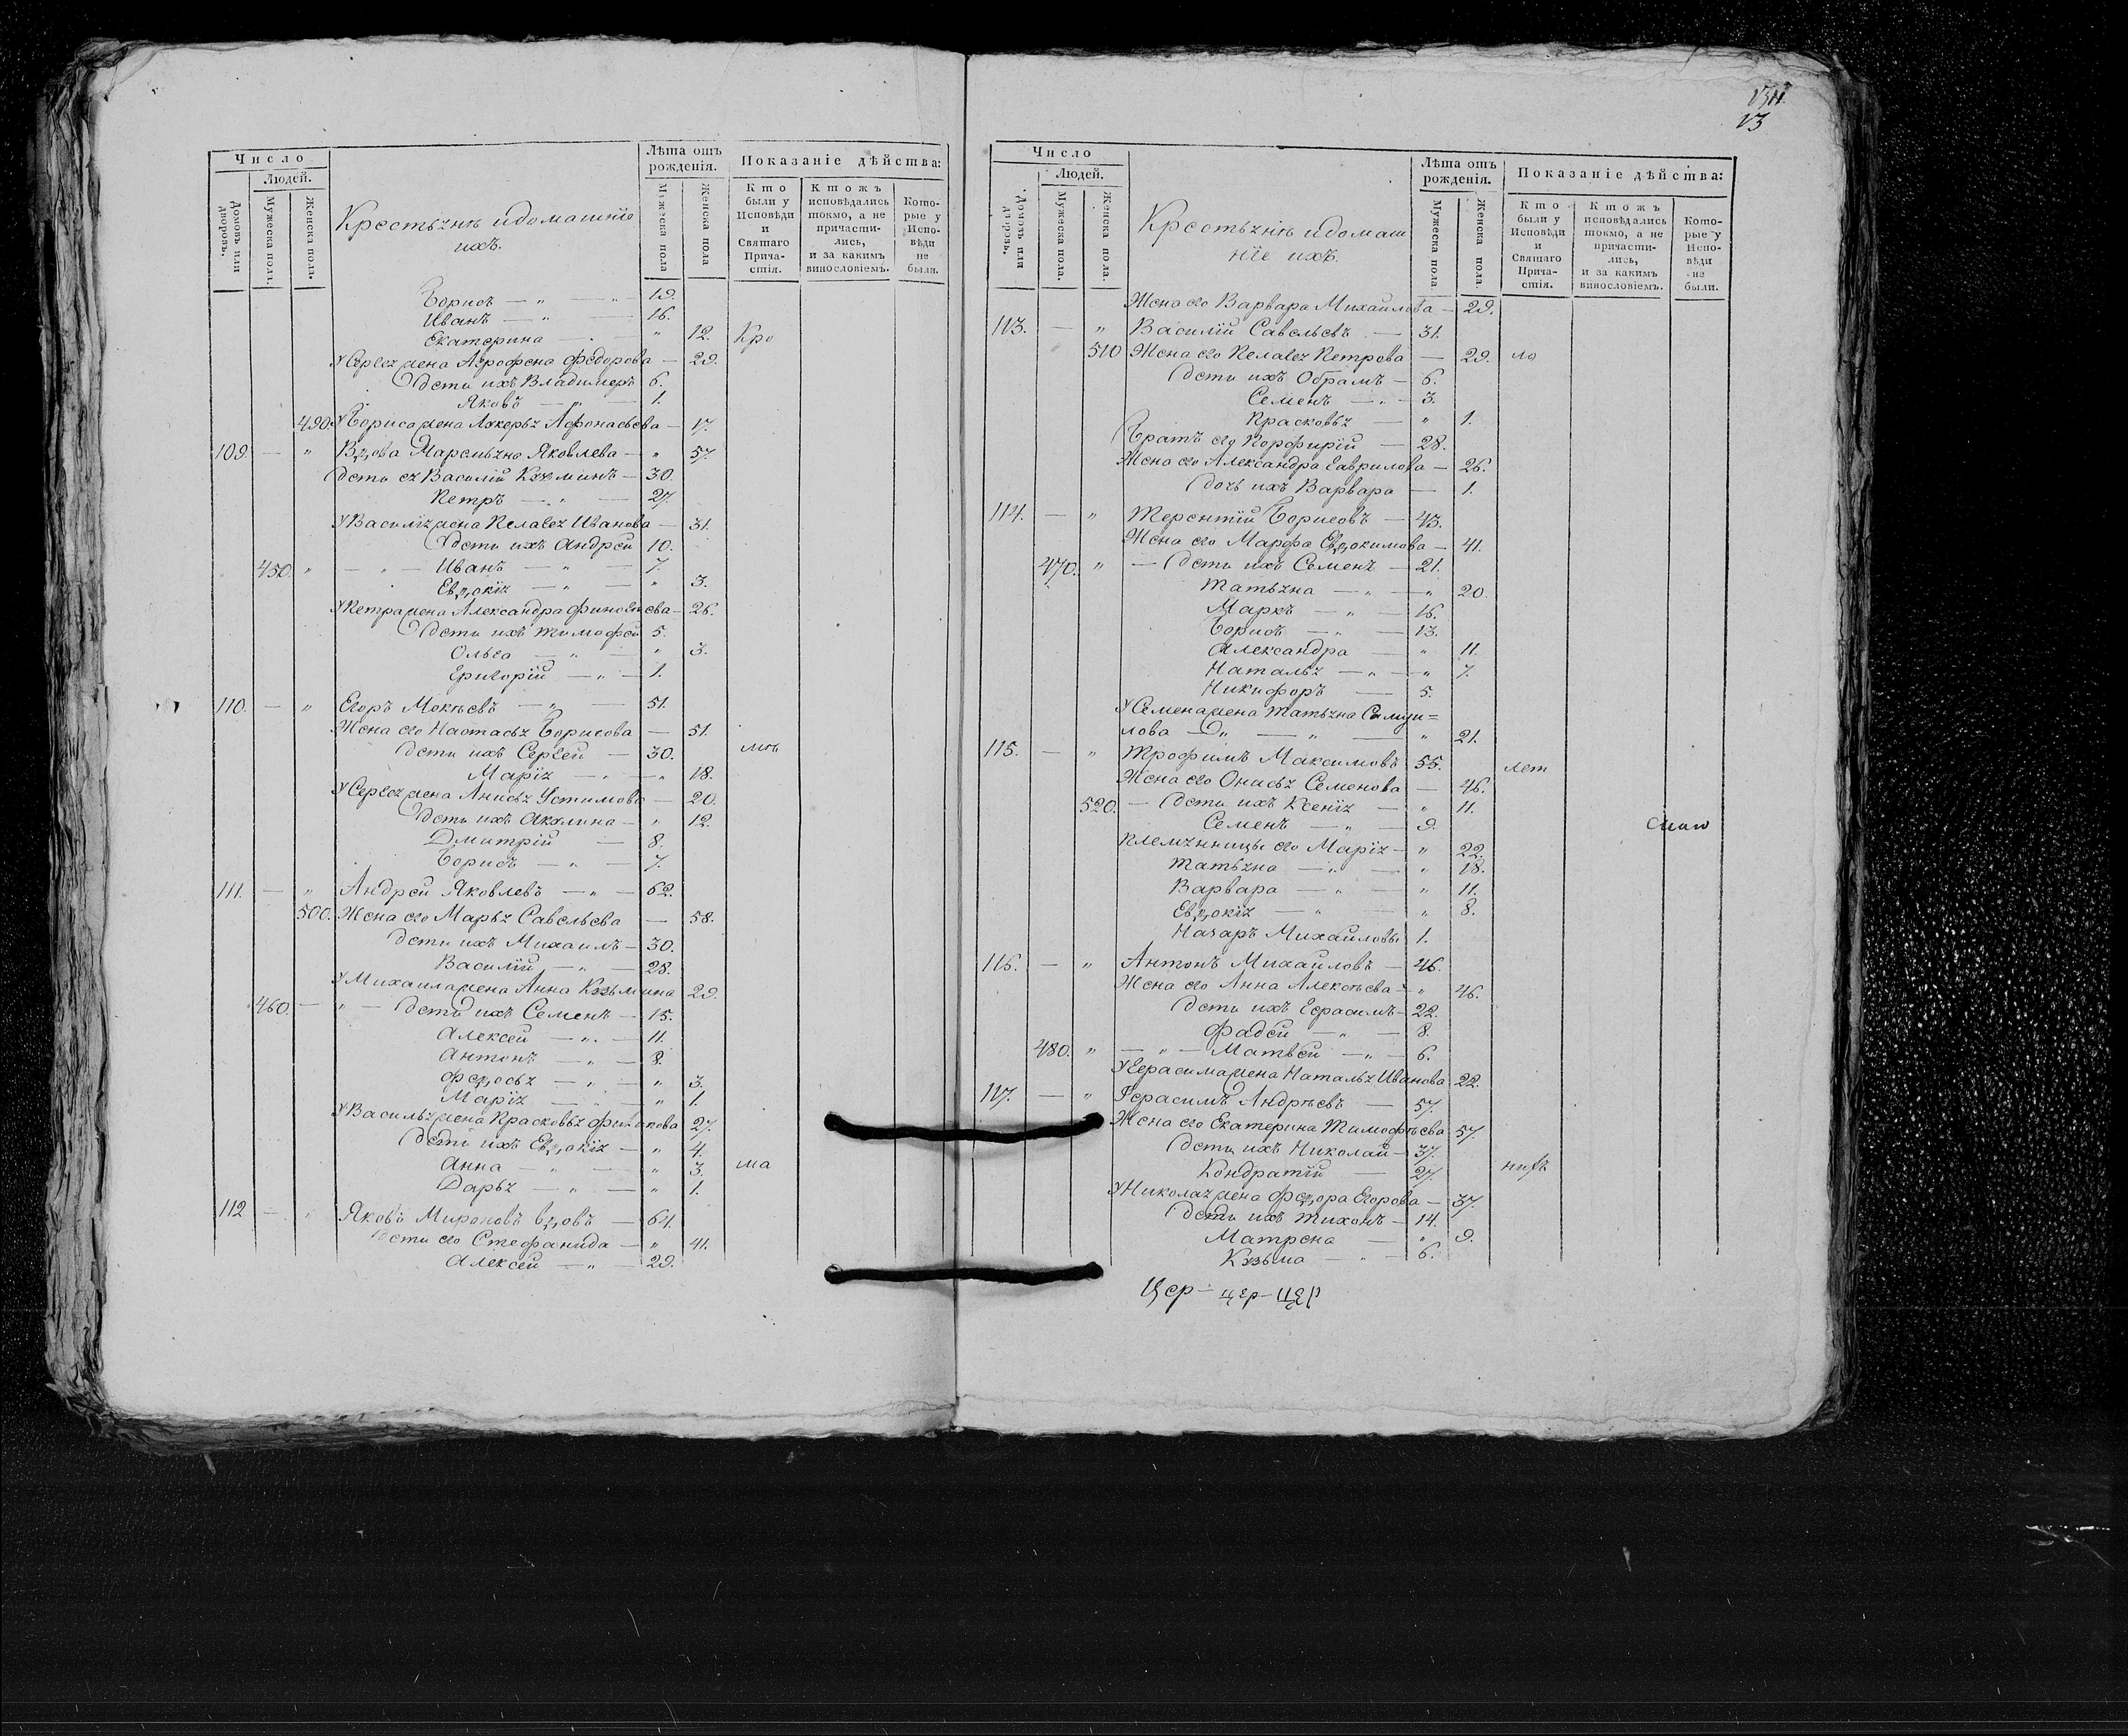 Число
Людей.
Домовъ или дворовъ.
Мужеска пола.
Женска пола.
Крестьянѣ идомашніе
ихъ.
Лѣта отъ рожденія.
Мужеска пола
Женска пола
Показаніе дѣйства:
Кто были у Исповѣди и Святаго Причастія.
Ктожъ исповѣдались токмо, а не причастились, и за какимъ винословіемъ.
Которые у Исповѣди не были.
Борисъ — „ — „ 19.
Иванъ — „ — 16.
Екатерина — „ 12. Кро
У Сергея жена Агрофена Федорова — 29.
Дети ихъ Владимеръ 6.
Яковъ — „ — 1.
490. У Бориса жена Лукерья Афонасьева — 17.
109. — „ Вдова Маремьяна Яковлева — „ 57.
Дети ея Василій Кузминъ — 30.
Петръ — „ — 27.
У Василія жена Пелагея Иванова — 31.
Дети ихъ Андрей 10.
450. „ — „ — Иванъ — „ — 7.
Евдокія — „ — „ 3.
У Петра жена Александра Финогенева — 26.
Дети ихъ Тимофей 5.
Ольга — „ — „ 3.
Григорій — „ — 1.
110. — „ Егоръ Мокѣевъ — „ — 51.
Жена его Настасья Борисова — 51.
Дети ихъ Сергей — 30. мъ
Марія — „ — „ 18.
У Сергея жена Анисья Устимова — 20.
Дети ихъ Акулина — „ 12.
Дмитрій — 8.
Борисъ — „ — 7.
111. — „ Андрей Яковлевъ — „ — 62.
500. Жена его Марья Савельева — 58.
Дети ихъ Михаилъ — 30.
Василій — „ — 28.
У Михаила жена Анна Кузьмина 29.
460. — „ — Дети ихъ Семенъ — 15.
Алексей — „ — 11.
Антонъ — „ — 8.
Федосья — „ — „ 3.
Марія — „ — „ 1.
У Василья жена Прасковья 27.
Дети ихъ Евдокія — „ 4.
Анна — „ — „ 3. ма
Дарья — „ — „ 1.
112 — „ Яковъ Мироновъ вдовъ — 64.
Дети его Стефанида — „ 41.
Алексей — „ — 29.
13
Число
Людей.
Домовъ или дворовъ.
Мужеска пола.
Женска пола.
Крестьянѣ идомаш
ніе ихъ.
Лѣта отъ рожденія.
Мужеска пола.
Женска пола.
Показаніе дѣйства:
Кто были у Исповѣди и Святаго Причастія.
Ктожъ исповѣдались токмо, а не причастились, и за какимъ винословіемъ.
Которые у Исповѣди не были.
Жена его Варвара Михайлова — 29.
113. — „ Василій Савельевъ — 31.
510 Жена его Пелагея Петрова — 29. ло
Дети ихъ Обрамъ — 6.
Семенъ — „ — 3.
Прасковья — „ 1.
Братъ его Порфирій — 28.
Жена его Александра Гаврилова — 26.
Дочь ихъ Варвара — 1.
114. — „ Терентій Борисовъ — 43.
Жена его Марфа Евдокимова — 41.
470. „ — Дети ихъ Семенъ — 21.
Татьяна — „ — „ 20.
Маркъ — „ — 16.
Борисъ — „ — 13.
Александра — „ 11.
Наталья — „ — „ 7.
Никифоръ — 5.
У Семена жена Татьяна
лова — „ — „ — „ 21.
115. — „ Трофимъ Максимовъ 55. лет
Жена его Онисья Семенова — 46.
520. — Дети ихъ Ксенія — „ 11.
Семенъ — „ — 9.
Племянницы его Марія — „ 22.
Татьяна — „ — „ 18.
Варвара — „ — „ 11.
Евдокія — „ — „ 8.
Михайловы 1.
116. — „ Антонъ Михайловъ — 46.
Жена его Анна Алексѣева — „ 46.
Дети ихъ Герасимъ — 22.
Фадей — „ — 8.
480. „ — „ — Матвей — „ — 6.
У Герасима жена Наталья Иванова 22.
117. — „ Герасимъ Андрѣевъ — 57.
Жена его Екатерина Тимофѣева 57.
Дети ихъ Николай — 37.
Кондратій — 27.
У Николая жена Федора Егорова — 37.
Дети ихъ Тихонъ — 14.
Матрена — „ 9.
Кузьма — „ — 6.
Цер — цер — цер